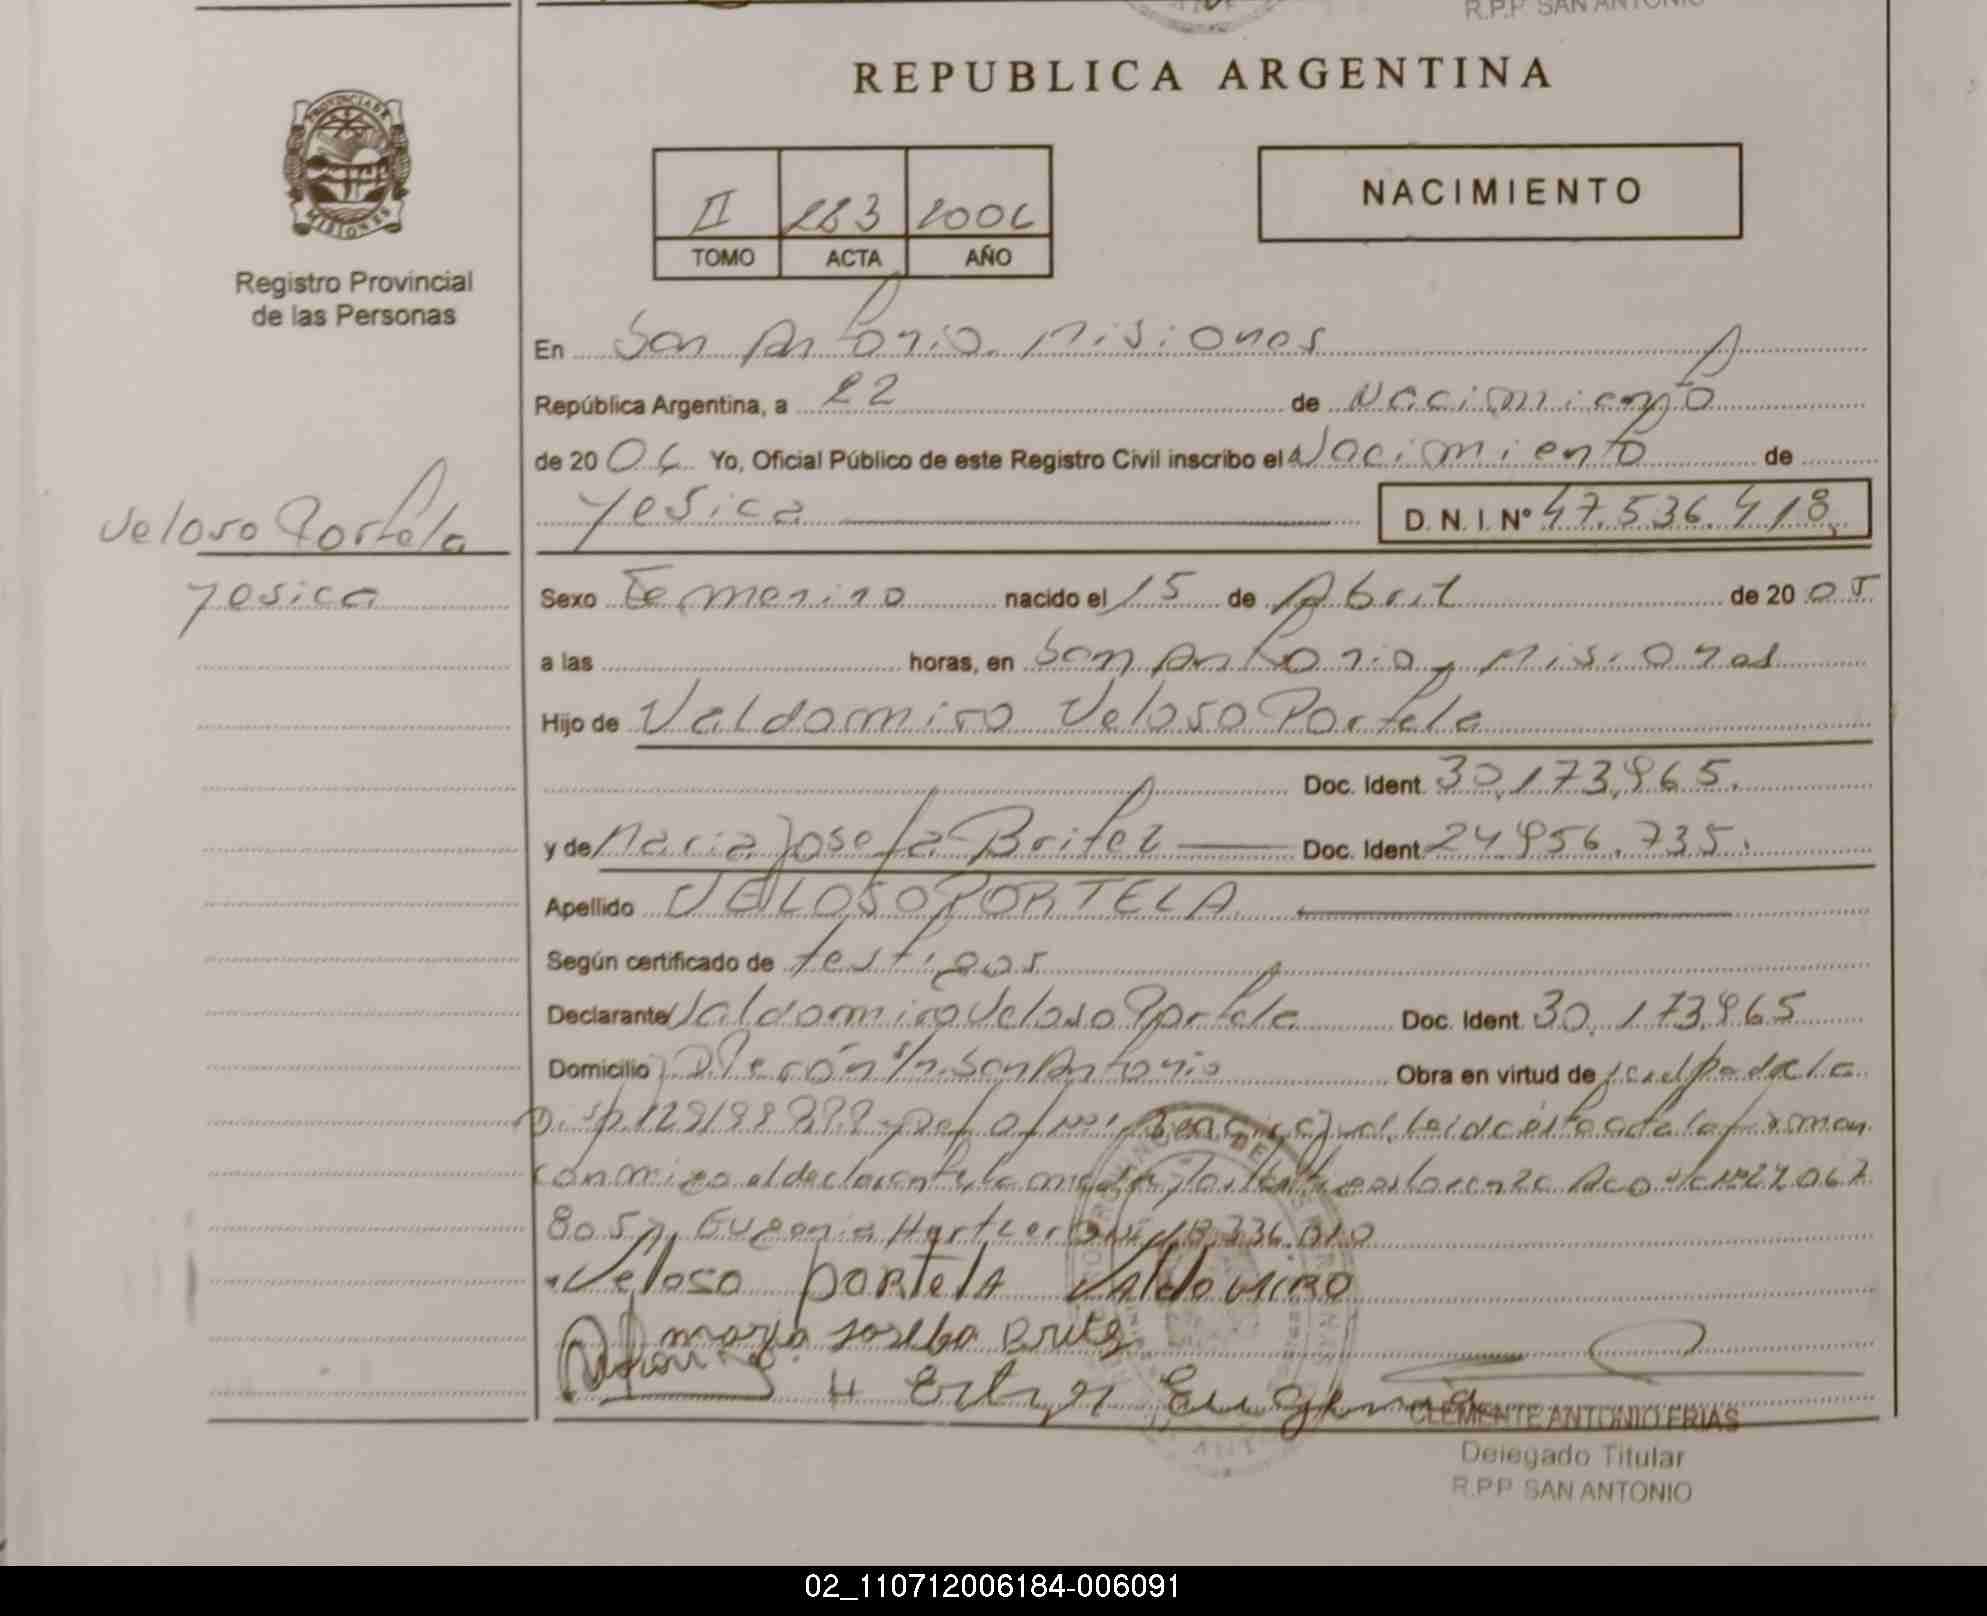 R.P.P. SAN ANTONIO
REPUBLICA ARGENTINA
PROVINCIA DE
MISIONES
Registro Provincial
de las Personas
II 283 2006
TOMO ACTA AÑO
NACIMIENTO
En San Antonio. Misiones
República Argentina, a 22 de Nacimiento
de 20 06 Yo, Oficial Público de este Registro Civil inscribo el Nacimiento de
Yesica D. N. I. Nº 47.536.418
Veloso Portela
Yesica
Sexo Femenino nacido el 15 de Abril de 20 05
a las horas, en San Antonio, Misiones
Hijo de Valdomiro Veloso Portela
Doc. Ident. 30.173.965.
y de Maria Josefa Britez Doc. Ident. 24.956.735.
Apellido VELOSO PORTELA
Según certificado de testigos
Declarante Valdomiro Veloso Portela Doc. Ident. 30.173.965
Domicilio s/n. San Antonio Obra en virtud de
Disp. 129/99 leída esta acta la firman
conmigo el declarante, la madre, y los testigos 27.067
805 y Eugenia 336.010
Veloso PORTELA VALdOMIRO
maria Josefa Britez
Eugenia
CLEMENTE ANTONIO FRIAS
Delegado Titular
R.P.P. SAN ANTONIO
02_110712006184-006091